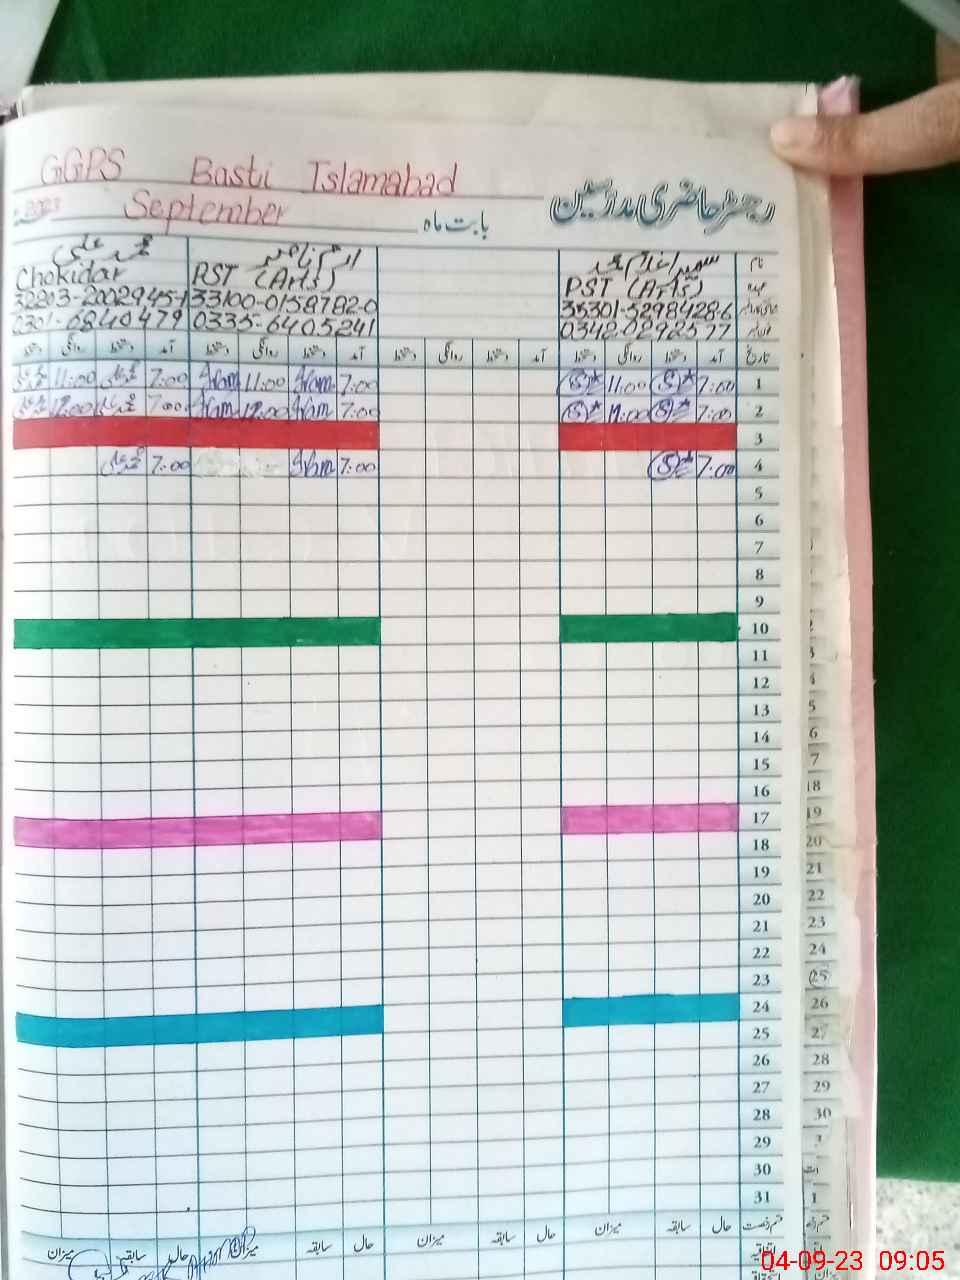 GGPS Basti Islamabad
رجسٹر حاضری مدرسین
2023 September بابت ماہ
نام سمیرا غلام محمد ارم ناصر محمد علی
عہدہ PST (Arts) PST (Arts) Chokidar
35301-5298428-6 33100-0158782-0 32203-2002945-1
0342-0292577 0335-6405241 0301-6840479
تاریخ آمد دستخط روانگی دستخط آمد دستخط روانگی دستخط آمد دستخط روانگی دستخط آمد دستخط روانگی دستخط
1 7:00 11:00 7:00 Iram 11:00 Iram 7:00 محمد علی 11:00 محمد علی
2 7:00 12:00 7:00 Iram 12:00 Iram 7:00 محمد علی 12:00 محمد علی
3
4 7:00 7:00 Iram 7:00 محمد علی
5
6
7
8
9
10
11
12
13
14
15
16
17
18
19
20
21
22
23
24
25
26
27
28
29
30
31
قسم رخصت حال سابقہ میزان حال سابقہ میزان حال سابقہ میزان حال سابقہ میزان
اتفاقیہ
18
19
20
21
22
23
24
25
26
27
28
29
30
04-09-23 09:05